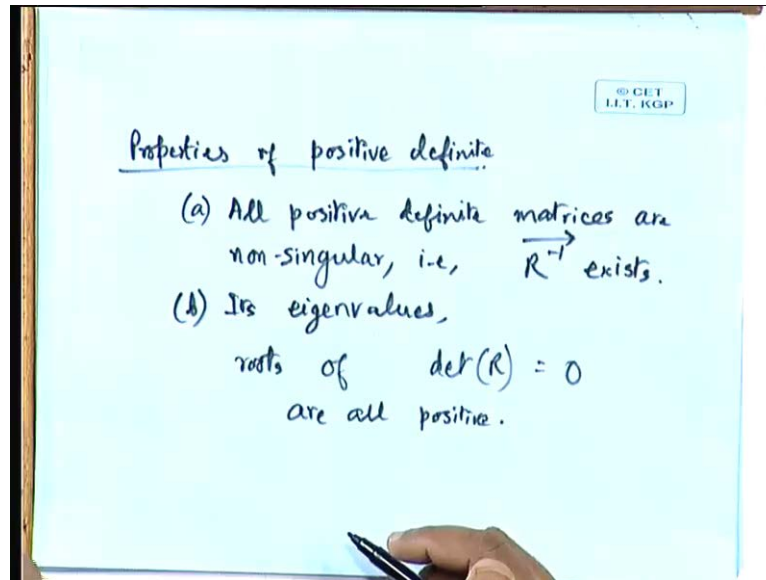 © CET
I.I.T. KGP
Properties of positive definite
(a) All positive definite matrices are
non-singular, i.e, R⁻¹ exists.
(b) Its eigenvalues,
roots of det(R) = 0
are all positive.